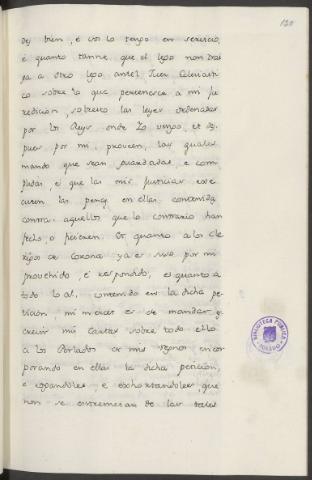 120
des bien, e vos lo tengo en servicio,
e quanto tanne, que el lego non trai
ga a otro lego antel Juez Eclesiasti
co sobre lo que pertenesce a mi ju
redicion, sobresto las leyes ordenadas
por los Reyes onde Yo vengo, et des
pues por mi, proveen, las quales
mando que sean guardadas, e com
plidas, e que las mis Justicias exe
cuten las penas en ellas contenidas
contra aquellos que lo contrario han
fecho, o ficieren. Et quanto a los Cle
rigos de Corona ya es suso por mi
provehido, e respondido, et quanto a
todo lo al, contenido en la dicha pe
ticion, mi merced es de mandar es
crevir mis Cartas sobre todo ello
a los Perlados de mis regnos encor
porando en ellas la dicha peticion,
e rogandoles, e exhortandoles, que
non se entremetan de las tales
BIBLIOTECA PUBLICA
TOLEDO